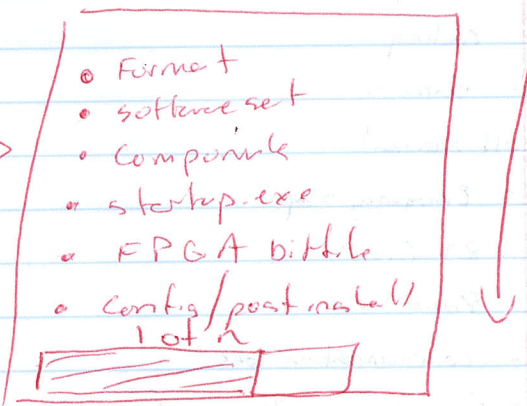 • Format
• software set
• Components
• startup.exe
• FPGA bitfile
• config/post install
1 of n